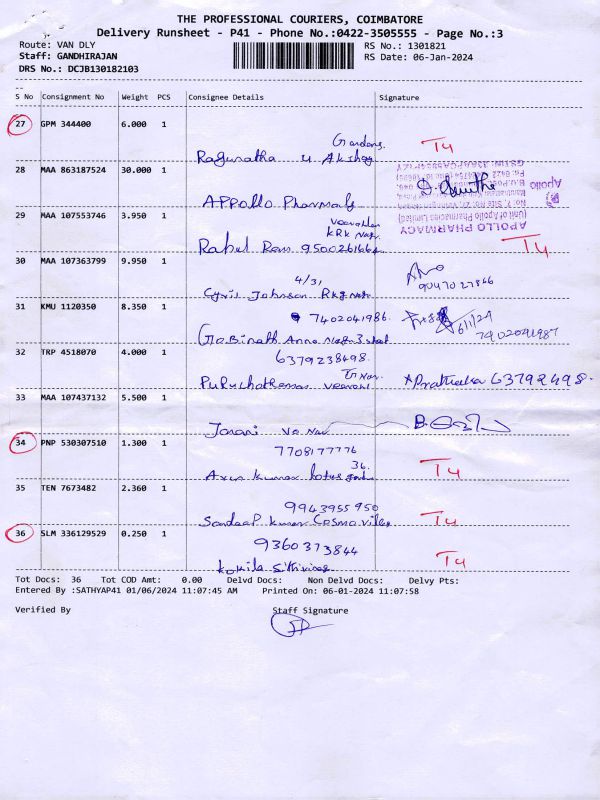 THE PROFESSIONAL COURIERS, COIMBATORE
Delivery Runsheet - P41 - Phone No.:0422-3505555 - Page No.:3
Route: VAN DLY RS No.: 1301821
Staff: GANDHIRAJAN RS Date: 06-Jan-2024
DRS No.: DCJB130182103
S No Consignment No Weight PCS Consignee Details Signature
27 GPM 344400 6.000 1
Gardens
Ragunatha u Akshay T4
28 MAA 863187524 30.000 1
Apollo
APPollo Pharmaly
APOLLO PHARMACY
(Unit of Apollo Pharmacies Limited)
29 MAA 107553746 3.950 1
KRK Nagr
Rahul Ram 9500261664 T4
30 MAA 107363799 9.950 1
4/31
Cyril Johnson RKg Nagr 9047027866
31 KMU 1120350 8.350 1
7402041986.
Gobinath Anna Nagr 3 6/1/24
7402041987
32 TRP 4518070 4.000 1
6379238498.
Puruchothaman 63792498.
33 MAA 107437132 5.500 1
Janani Ve Nar
34 PNP 530307510 1.300 1
7708177776
36.
Arun Kumar lotus T4
35 TEN 7673482 2.360 1
9943955950
Sandeep Kumar Cosmo Villa T4
36 SLM 336129529 0.250 1
9360373844
Kokila T4
Tot Docs: 36 Tot COD Amt: 0.00 Delvd Docs: Non Delvd Docs: Delvy Pts:
Entered By :SATHYAP41 01/06/2024 11:07:45 AM Printed On: 06-01-2024 11:07:58
Verified By Staff Signature